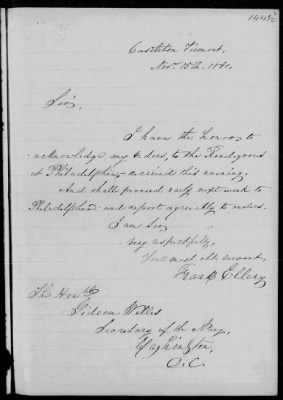 144½
Castleton Vermont,
Nov. 15th, 1861.
Sir,
I have the honor to
acknowledge my orders, to the Rendezvous
at Philadelphia received this evening.
And shall proceed early next week to
Philadelphia and report agreeably to orders.
I am Sir,
very respectfully,
Your most obt. servant,
Frank Ellery
The Honble
Gideon Welles
Secretary of the Navy,
Washington,
D.C.